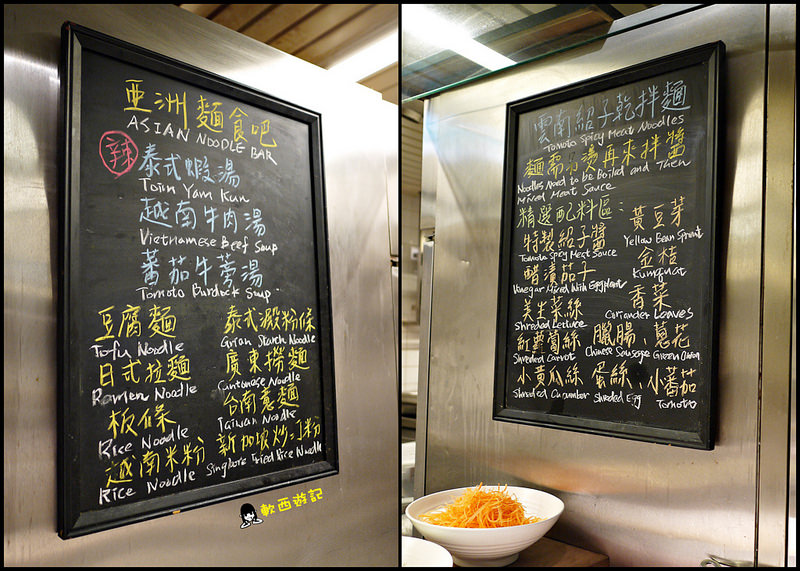 亞洲麵食吧
ASIAN NOODLE BAR
辣
泰式蝦湯
Tom Yam Kun
越南牛肉湯
Vietnamese Beef Soup
蕃茄牛蒡湯
Tomato Burdock Soup
豆腐麵
Tofu Noodle
日式拉麵
Ramen Noodle
板條
Rice Noodle
越南米粉
Rice Noodle
泰式澱粉條
Grian Starch Noodle
廣東撈麵
Cuntonese Noodle
台南意麵
Taiwan Noodle
新加坡炒河粉
Singbore Fried Rice Noodle
軟西遊記
雲南紹子乾拌麵
Tomato Spicy Meat Noodles
麵需汆湯再來拌醬
Noodles Need to be Boiled and Then
Mixed Meat Sauce
精選配料區:
特製紹子醬
Tomato Spicy Meat Sauce
醋漬茄子
Vinegar Mixed With Eggplant
美生菜絲
Shreded Lettuce
紅蘿蔔絲
Shreded Carrot
小黃瓜絲
Shreded Cucumber
黃豆芽
Yellow Bean Sprout
金桔
Kumquat
香菜
Coriander Leaves
臘腸、蔥花
Chinese Sausage Green Onion
蛋絲、小蕃茄
Shreded Egg Tomato